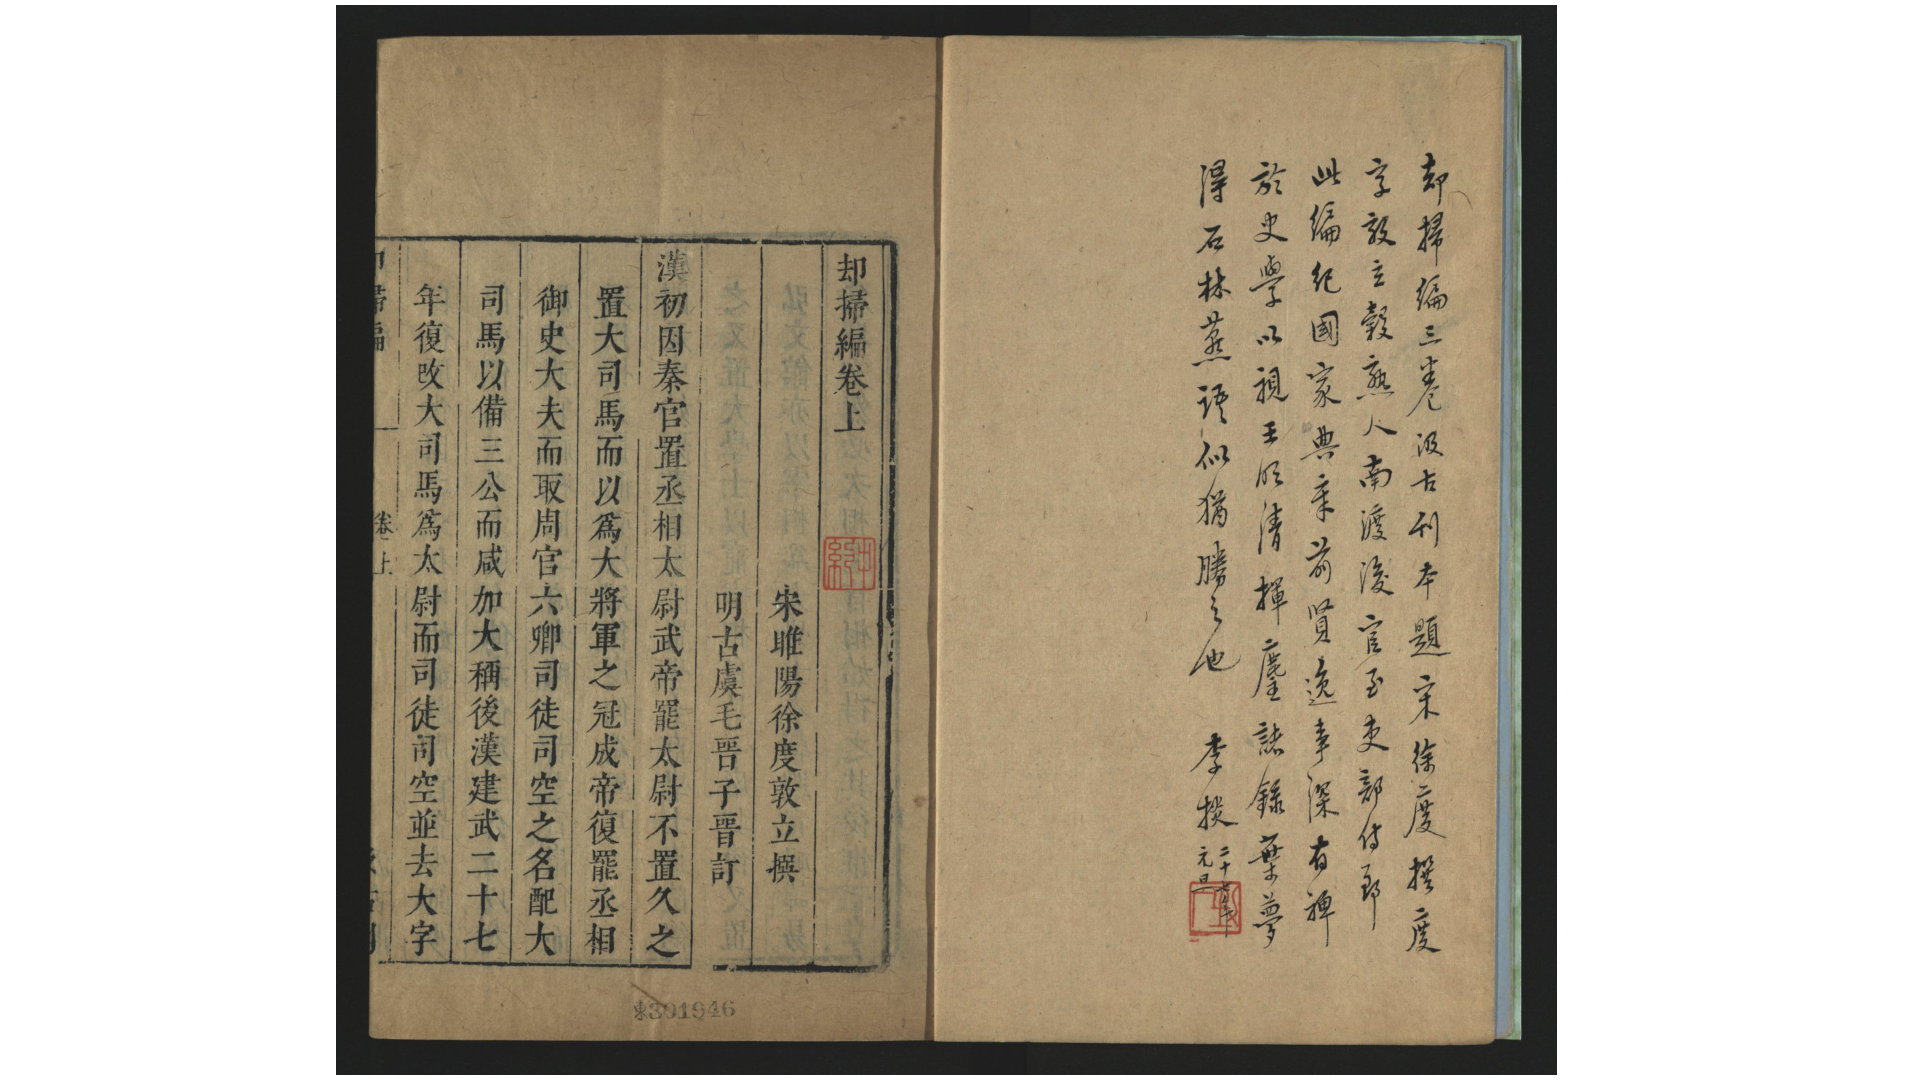 却掃編三卷汲古刊本題宋徐度撰度
字敦立穀熟人南渡後官至吏部侍郎
此編紀國家典章前賢逸事深有裨
於史學以視王明清揮麈諸錄葉夢
得石林燕語似猶勝之也 李棪
二十七年
元旦
却掃編卷上
宋睢陽徐度敦立撰
明古虞毛晉子晉訂
漢初因秦官置丞相太尉武帝罷太尉不置久之
置大司馬而以為大將軍之冠成帝復罷丞相
御史大夫而取周官六卿司徒司空之名配大
司馬以備三公而咸加大稱後漢建武二十七
年復改大司馬為太尉而司徒司空並去大字
卷上
東301946